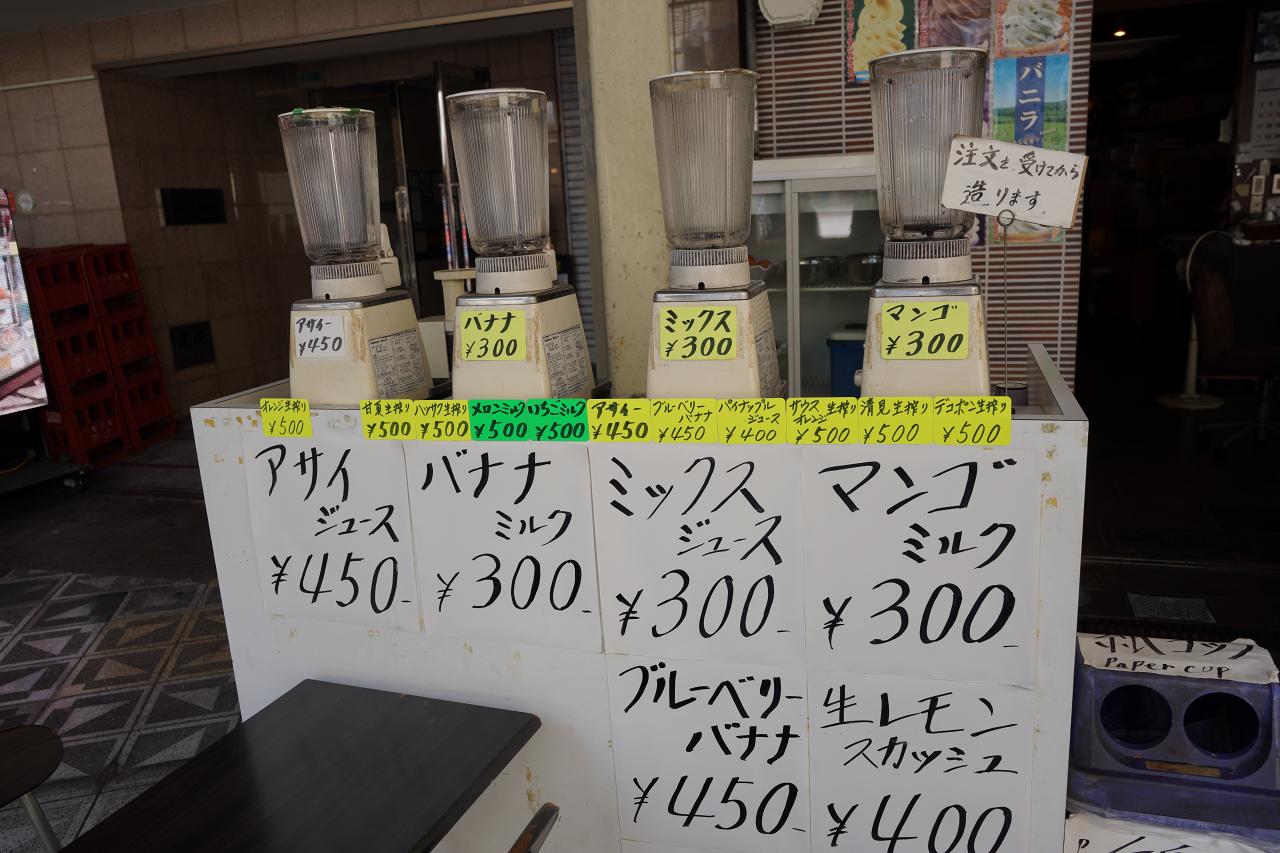 バニラ
注文を受けてから
造ります
アサイー
¥450
バナナ
¥300
ミックス
¥300
マンゴ
¥300
オレンジ生搾り
¥500
甘夏生搾り
¥500
ハッサク生搾り
¥500
メロンミルク
¥500
いちごミルク
¥500
アサイー
¥450
ブルーベリー
バナナ
¥450
パイナップル
ジュース
¥400
サウス
オレンジ
生搾り
¥500
清見生搾り
¥500
デコポン生搾り
¥500
アサイ
ジュース
¥450-
バナナ
ミルク
¥300-
ミックス
ジュース
¥300-
マンゴ
ミルク
¥300-
ブルーベリー
バナナ
¥450-
生レモン
スカッシュ
¥400
紙コップ
Paper cup